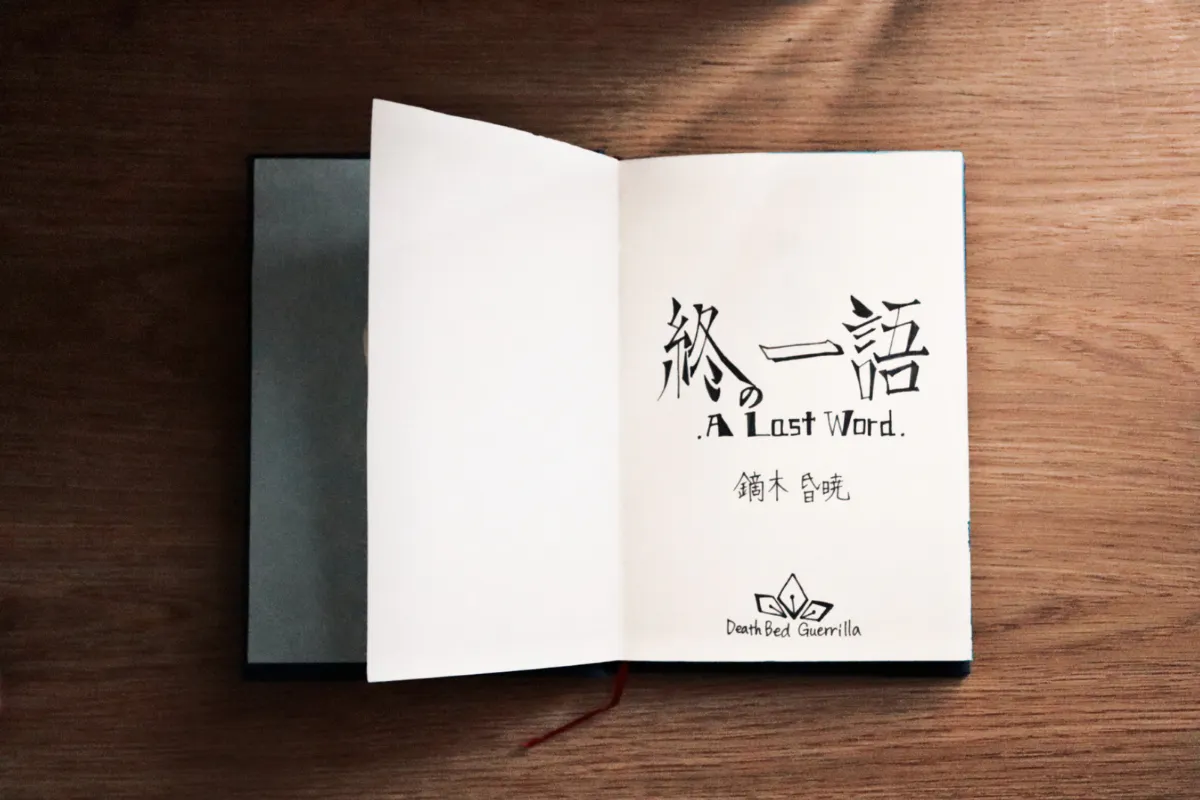 終の一語
.A Last Word.
鏑木 昏暁
Death Bed Guerrilla